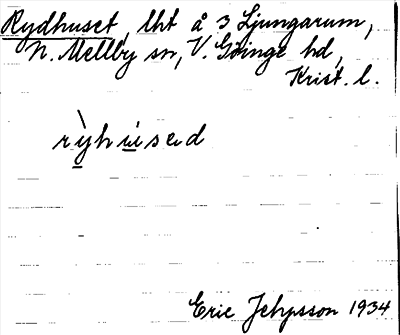 Rydhuset, lht å 3 Ljungarum,
N. Mellby sn, V. Göinge hd,
Krist. l.
rỳhu̇sed
Eric Jehpsson 1934